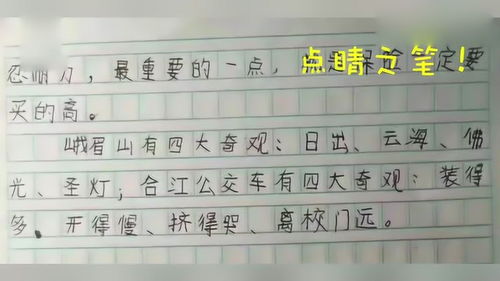 忍耐力，最重要的一点，保险定要
点睛之笔！
买的高。
峨眉山有四大奇观：日出、云海、佛
光、圣灯；合江公交车有四大奇观：装得
多、开得慢、挤得哭、离校门远。